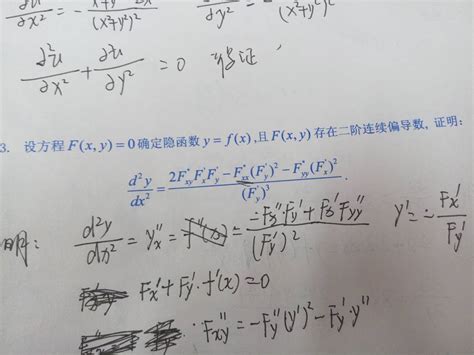 ∂²u/∂x² = - (x²+y²-2x)/(x²+y²)² ∂u/∂y² = /(x²+y²)²
∂²u/∂x² + ∂²u/∂y² = 0 得证
3. 设方程 F(x, y) = 0 确定隐函数 y = f(x), 且 F(x, y) 存在二阶连续偏导数, 证明:
d²y/dx² = (2F″xy F′x F′y − F″xx (F′y)² − F″yy (F′x)²)/(F′y)³ .
明: d²y/dx² = y″x = f″(x) = (−F″x F′y + F′x F″yy)/(F′y)² y′ = − F′x/F′y
F′x + F′y · f′(x) = 0
F″xy = −F″y (y′)² − F′y · y″